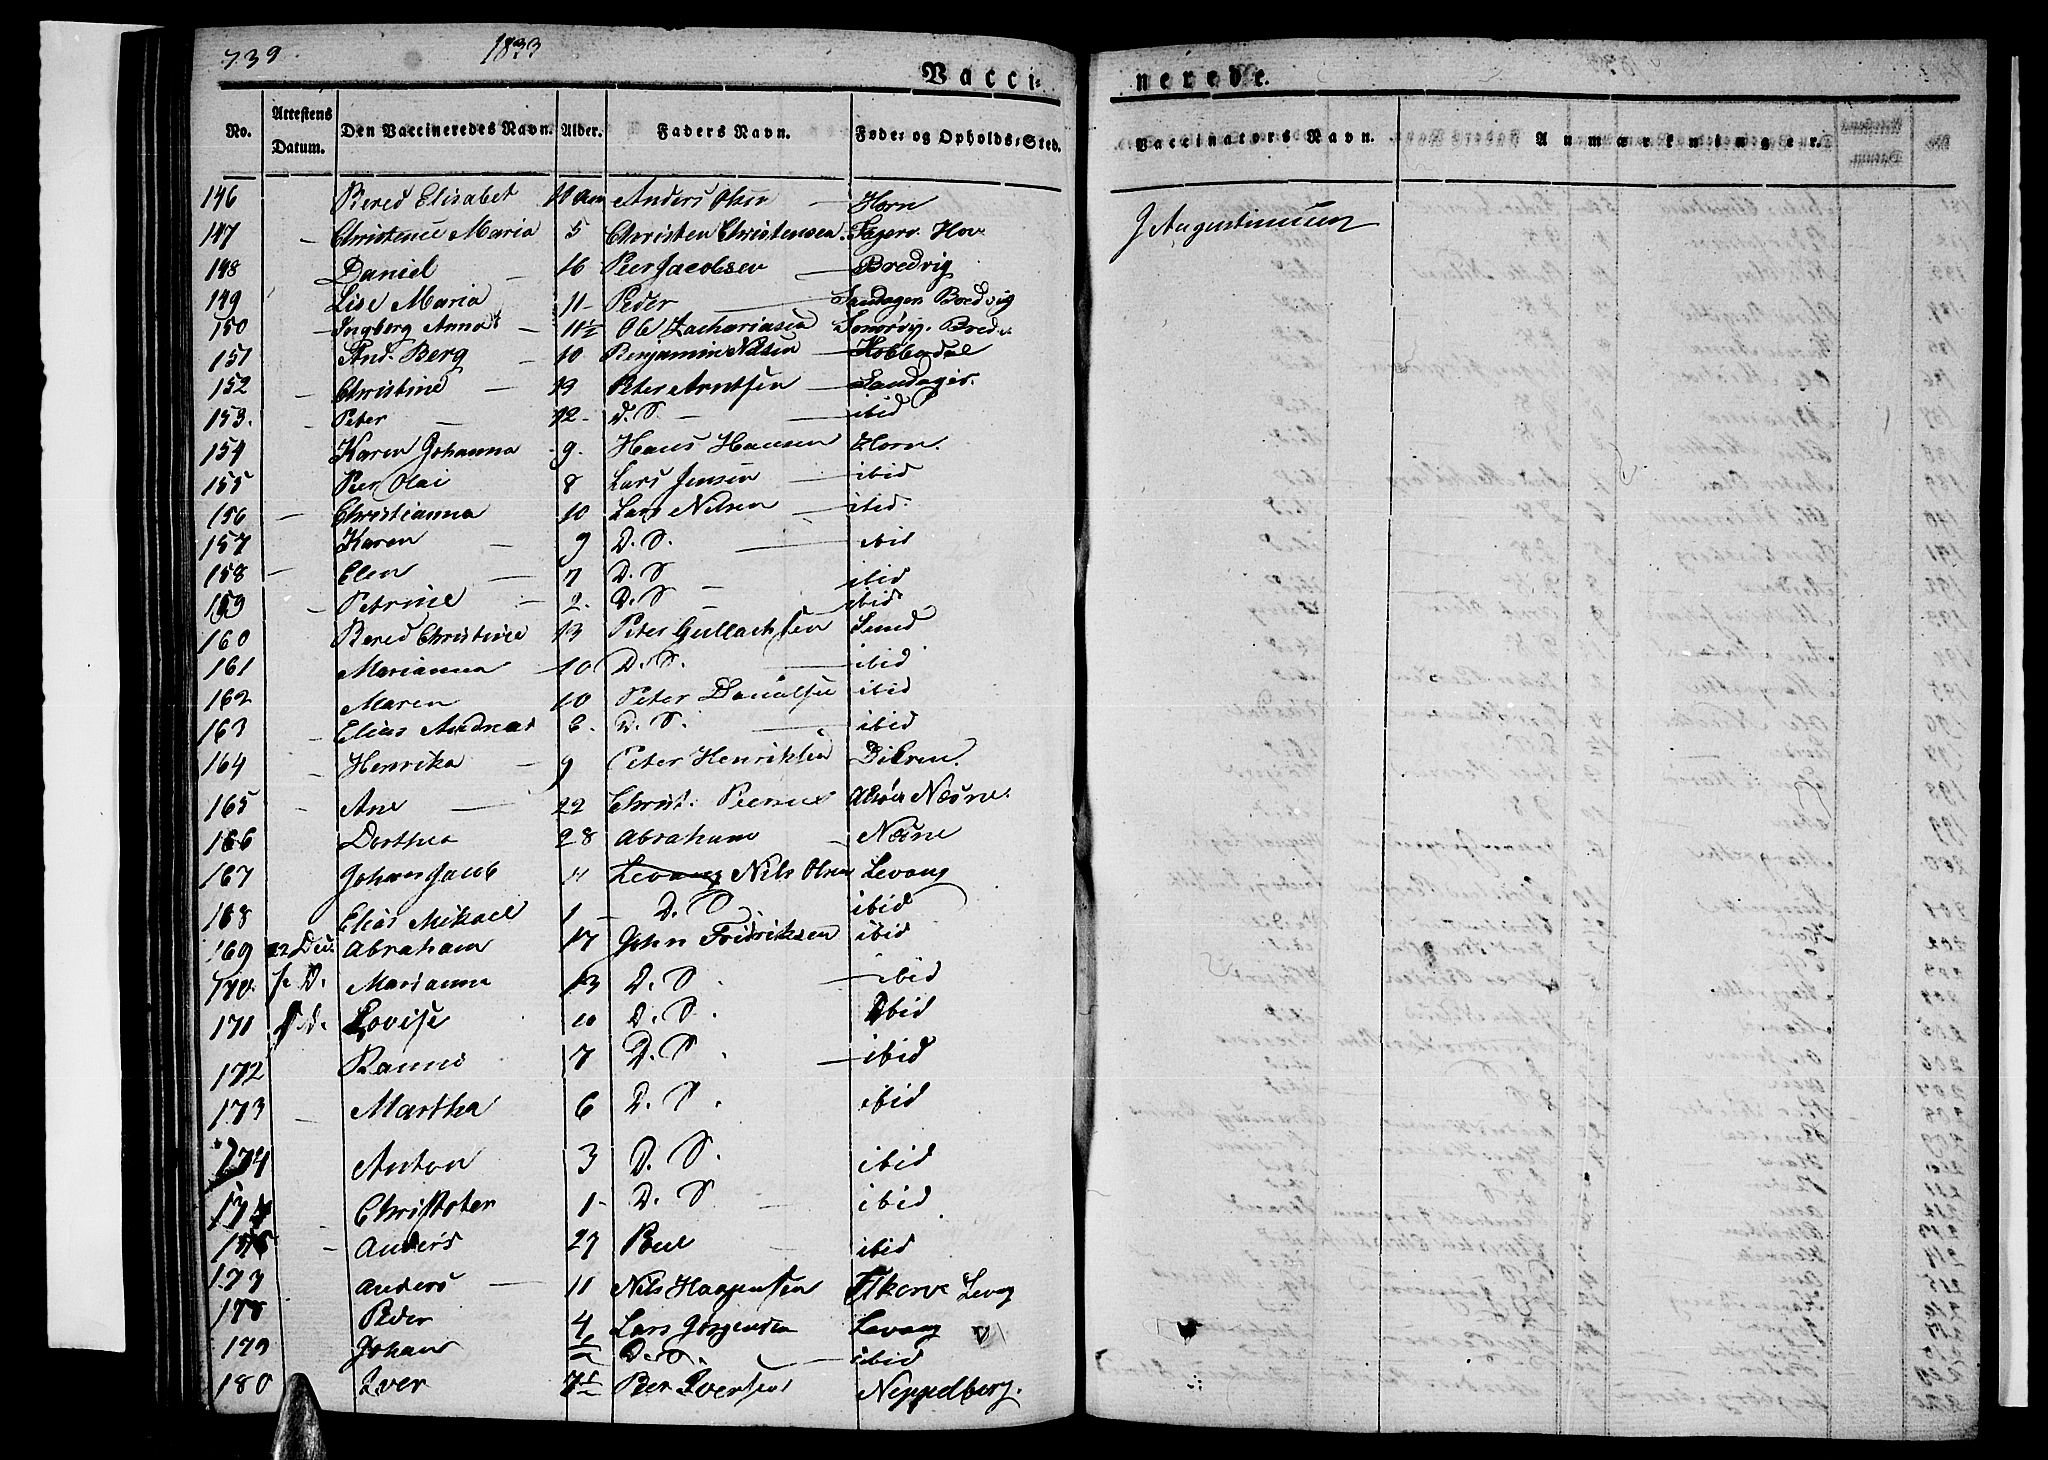 739. 1833
Vacci- nerede.
No. Attestens Datum. Den Vaccineredes Navn. Alder. Faders Navn. Føde- og Opholds-Sted. Vaccinators Navn. Anmærkninger.
146 Bered Elisabet 11 Anders Olsen - Horn J Augustinussen
147 - Christense Maria 5 Christen Christensen. Hov
148 Daniel - 16 Peer Jacobsen - Bredvig
149 Lise Maria 11 - Peder - Sandager Bredvig
150 - Ingberg Anna - 11½ Ole Zachariasen
151 And. Berg - 10 Benjamin Nilsen - Kobberdal
152 - Christine - 19 Peter Arntsen - Sandager.
153. Peter - 12 - D. S. - ibid
154 Karen Johanna - 9. Hans Hansen Horn.
155 Peer Olai 8 Lars Jensen - ibid
156 - Christianna 10 Lars Nilsen - ibid.
157 Karen - 9 D. S. - ibid
158 - Elen - 7 D. S - ibid
159 - Petrine - 2. D. S - ibid.
160 Bered Christine 13 Peter Gullachsen Lund
161 Marianna - 10 D. S. - ibid
162 Maren 10 Peter Danielsen ibid
163 - Elias Andreas 6. D. S. - ibid
164 - Henrika - 9 Peter Henriksen
165 - Ane - 22 Christ. Næsne.
166 Dorthea 28 Abraham - Næsne
167 Johan Jacob 4 Levang Nils Olsen Levang
168 Elias Mikael 1 - D. S. ibid
169 22 Dec. Abraham 17 John Fridriksen ibid
170. D. Marianna 13 D. S. - ibid
171 D. Lovise 10 D. S. ibid
172 7 D. S. - ibid
173 - Martha 6 D. S. ibid
174 Anton 3 D. S. ibid
Christofer 1 - D. S - ibid
- Anders 27 Poul - ibid
177 Anders - 11 Nils Haagensen Levang
178 Peder 4 Lars Jørgensen Levang
179 Johan ½ D. S. - ibid
180 Iver Peer Iversen Neppelberg.